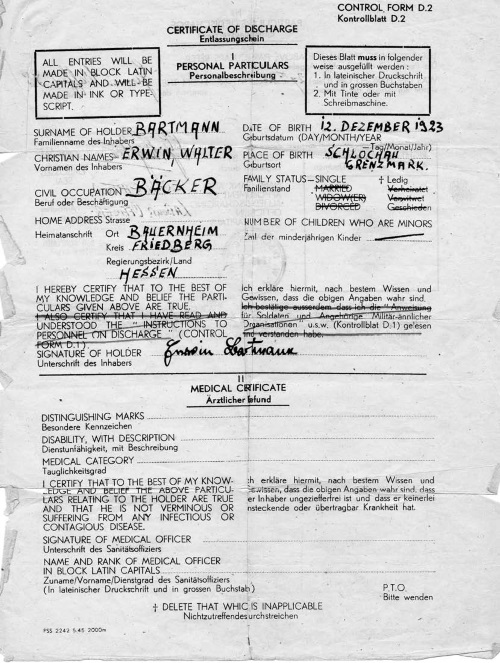 CONTROL FORM D.2
Kontrollblatt D.2
CERTIFICATE OF DISCHARGE
Entlassungschein
I
PERSONAL PARTICULARS
Personalbeschreibung
ALL ENTRIES WILL BE
MADE IN BLOCK LATIN
CAPITALS AND WILL BE
MADE IN INK OR TYPE-
SCRIPT.
Dieses Blatt muss in folgender
weise ausgefüllt werden:
1. In lateinischer Druckschrift
und in grossen Buchstaben
2. Mit Tinte oder mit
Schreibmaschine.
SURNAME OF HOLDER BARTMANN
Familienname des Inhabers
CHRISTIAN NAMES ERWIN WALTER
Vornamen des Inhabers
CIVIL OCCUPATION BÄCKER
Beruf oder Beschäftigung
HOME ADDRESS Strasse
Heimatanschrift Ort BAUERNHEIM
Kreis FRIEDBERG
Regierungsbezirk/Land
HESSEN
DATE OF BIRTH 12. DEZEMBER 1923
Geburtsdatum (DAY/MONTH/YEAR
Tag/Monat/Jahr)
PLACE OF BIRTH SCHLOCHAU
Geburtsort GRENZMARK.
FAMILY STATUS—SINGLE † Ledig
Familienstand MARRIED Verheiratet
WIDOW(ER) Verwitwet
DIVORCED Geschieden
NUMBER OF CHILDREN WHO ARE MINORS
Zahl der minderjährigen Kinder
I HEREBY CERTIFY THAT TO THE BEST OF
MY KNOWLEDGE AND BELIEF THE PARTI-
CULARS GIVEN ABOVE ARE TRUE.
I ALSO CERTIFY THAT I HAVE READ AND
UNDERSTOOD THE " INSTRUCTIONS TO
PERSONNEL ON DISCHARGE " (CONTROL
FORM D.1)
SIGNATURE OF HOLDER Erwin Bartmann
Unterschrift des Inhabers
Ich erkläre hiermit, nach bestem Wissen und
Gewissen, dass die obigen Angaben wahr sind.
Ich bestätige ausserdem dass ich die "Anweisung
für Soldaten und Angehörige Militär-ännlicher
Organisationen u.s.w. (Kontrollblat D.1) gelesen
und verstanden habe.
II
MEDICAL CRTIFICATE
Ärztlicher Befund
DISTINGUISHING MARKS
Besondere Kennzeichen
DISABILITY, WITH DESCRIPTION
Dienstunfähigkeit, mit Beschreibung
MEDICAL CATEGORY
Tauglichkeitsgrad
I CERTIFY THAT TO THE BEST OF MY KNOW-
LEDGE AND BELIEF THE ABOVE PARTICU-
LARS RELATING TO THE HOLDER ARE TRUE
AND THAT HE IS NOT VERMINOUS OR
SUFFERING FROM ANY INFECTIOUS OR
CONTAGIOUS DISEASE.
ch erkläre hiermit, nach bestem Wissen und
Gewissen, dass die obigen Angaben wahr sind, dass
er Inhaber ungeziefferfrei ist und dass er keinerlei
nsteckende oder übertragbar Krankheit hat.
SIGNATURE OF MEDICAL OFFICER
Unterschrift des Sanitätsoffiziers
NAME AND RANK OF MEDICAL OFFICER
IN BLOCK LATIN CAPITALS
Zuname/Vorname/Dienstgrad des Sanitätsoffiziers
(In lateinischer Druckschrift und in grossen Buchstab)
P.T.O.
Bitte wenden
† DELETE THAT WHIC IS INAPPLICABLE
Nichtzutreffendes urchstreichen
PSS 2242 5.45 2000m